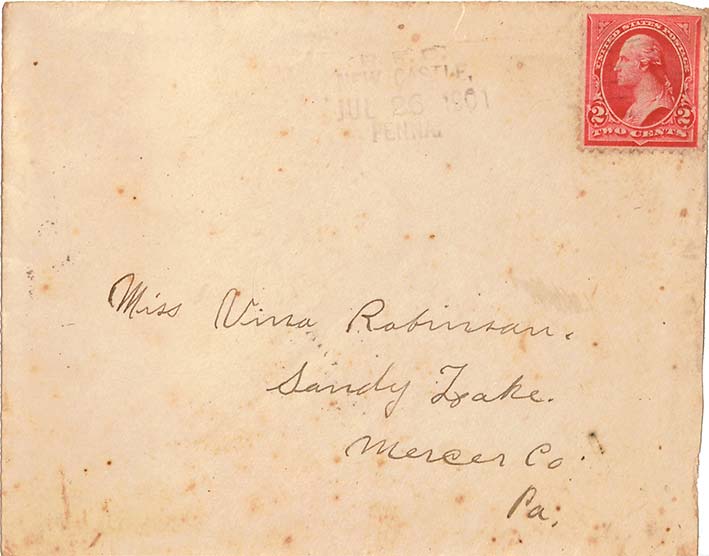 R.F.D.
NEW CASTLE,
JUL 26 1901
PENNA.
UNITED STATES POSTAGE
2 2
TWO CENTS
Miss Vina Robinson.
Sandy Lake.
Mercer Co
Pa.